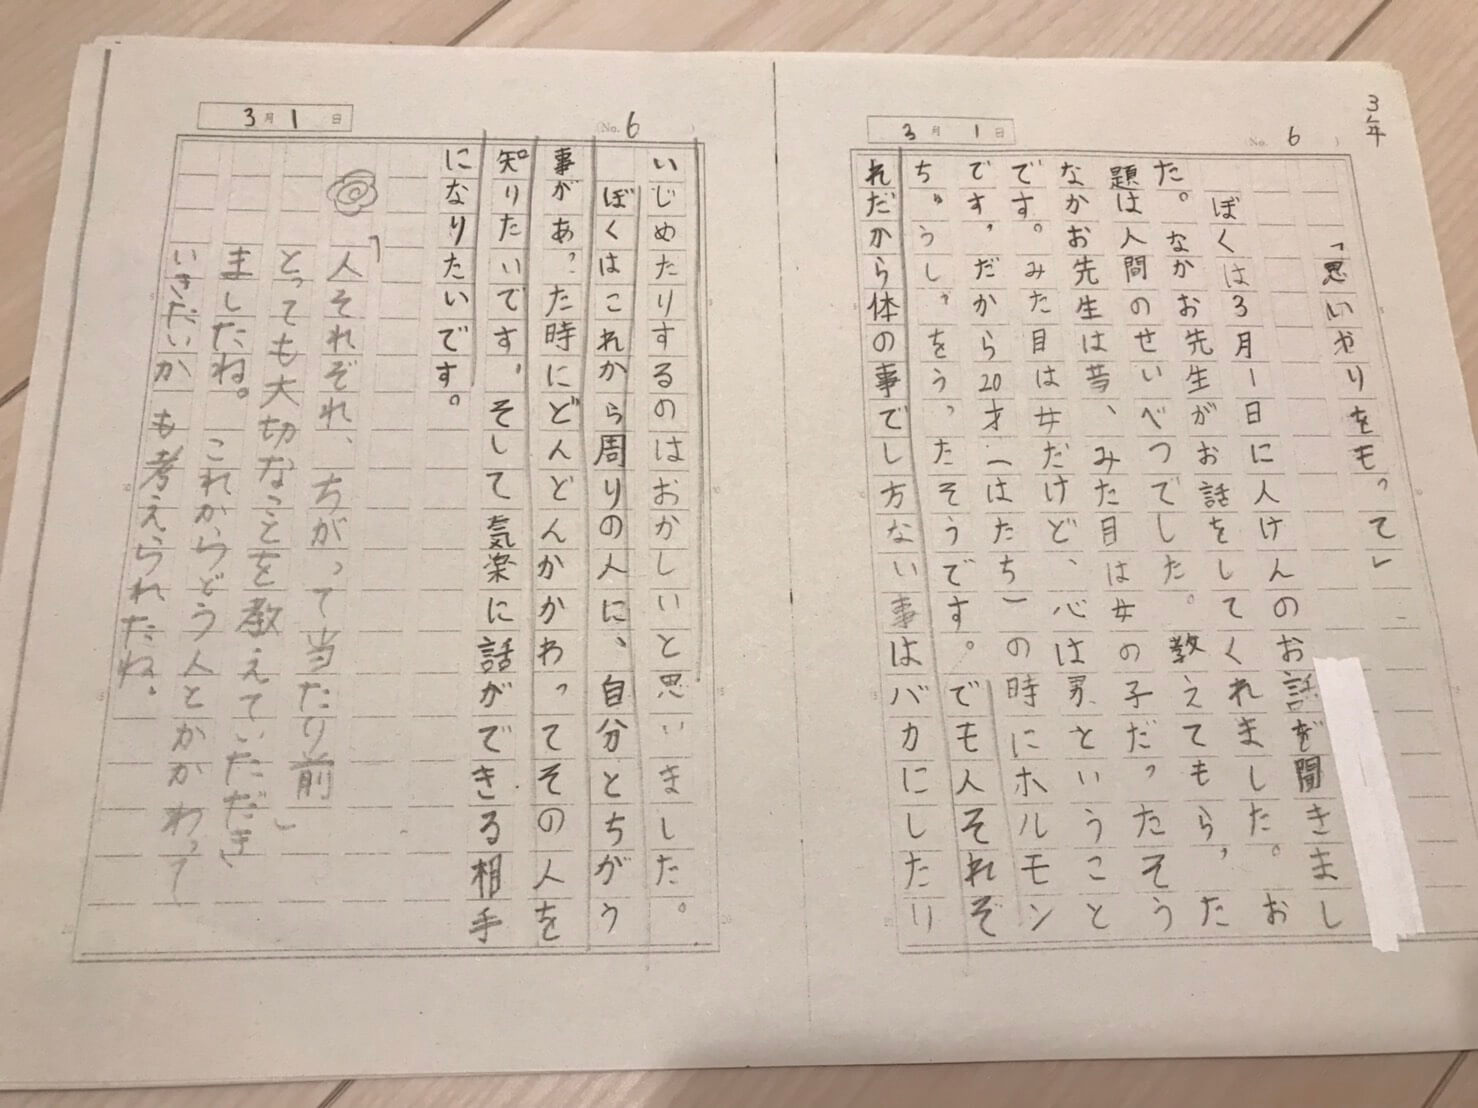 3年
(No. 6)
3月1日
「思いやりをもって」
ぼくは3月1日に人けんのお話を聞きまし
た。なかお先生がお話をしてくれました。お
題は人間のせいべつでした。教えてもらった
なかお先生は昔、みた目は女の子だったそう
です。みた目は女だけど、心は男ということ
です。だから20才(はたち)の時にホルモン
ちゅうしゃをうったそうです。でも人それぞ
れだから体の事でし方ない事はバカにしたり
(No. 6)
3月1日
いじめたりするのはおかしいと思いました。
ぼくはこれから周りの人に、自分とちがう
事があった時にどんどんかかわってその人を
知りたいです。そして気楽に話ができる相手
になりたいです。
「人それぞれ、ちがって当たり前」
とっても大切なことを教えていただき
ましたね。これからどう人とかかわって
いきたいかも考えられたね。